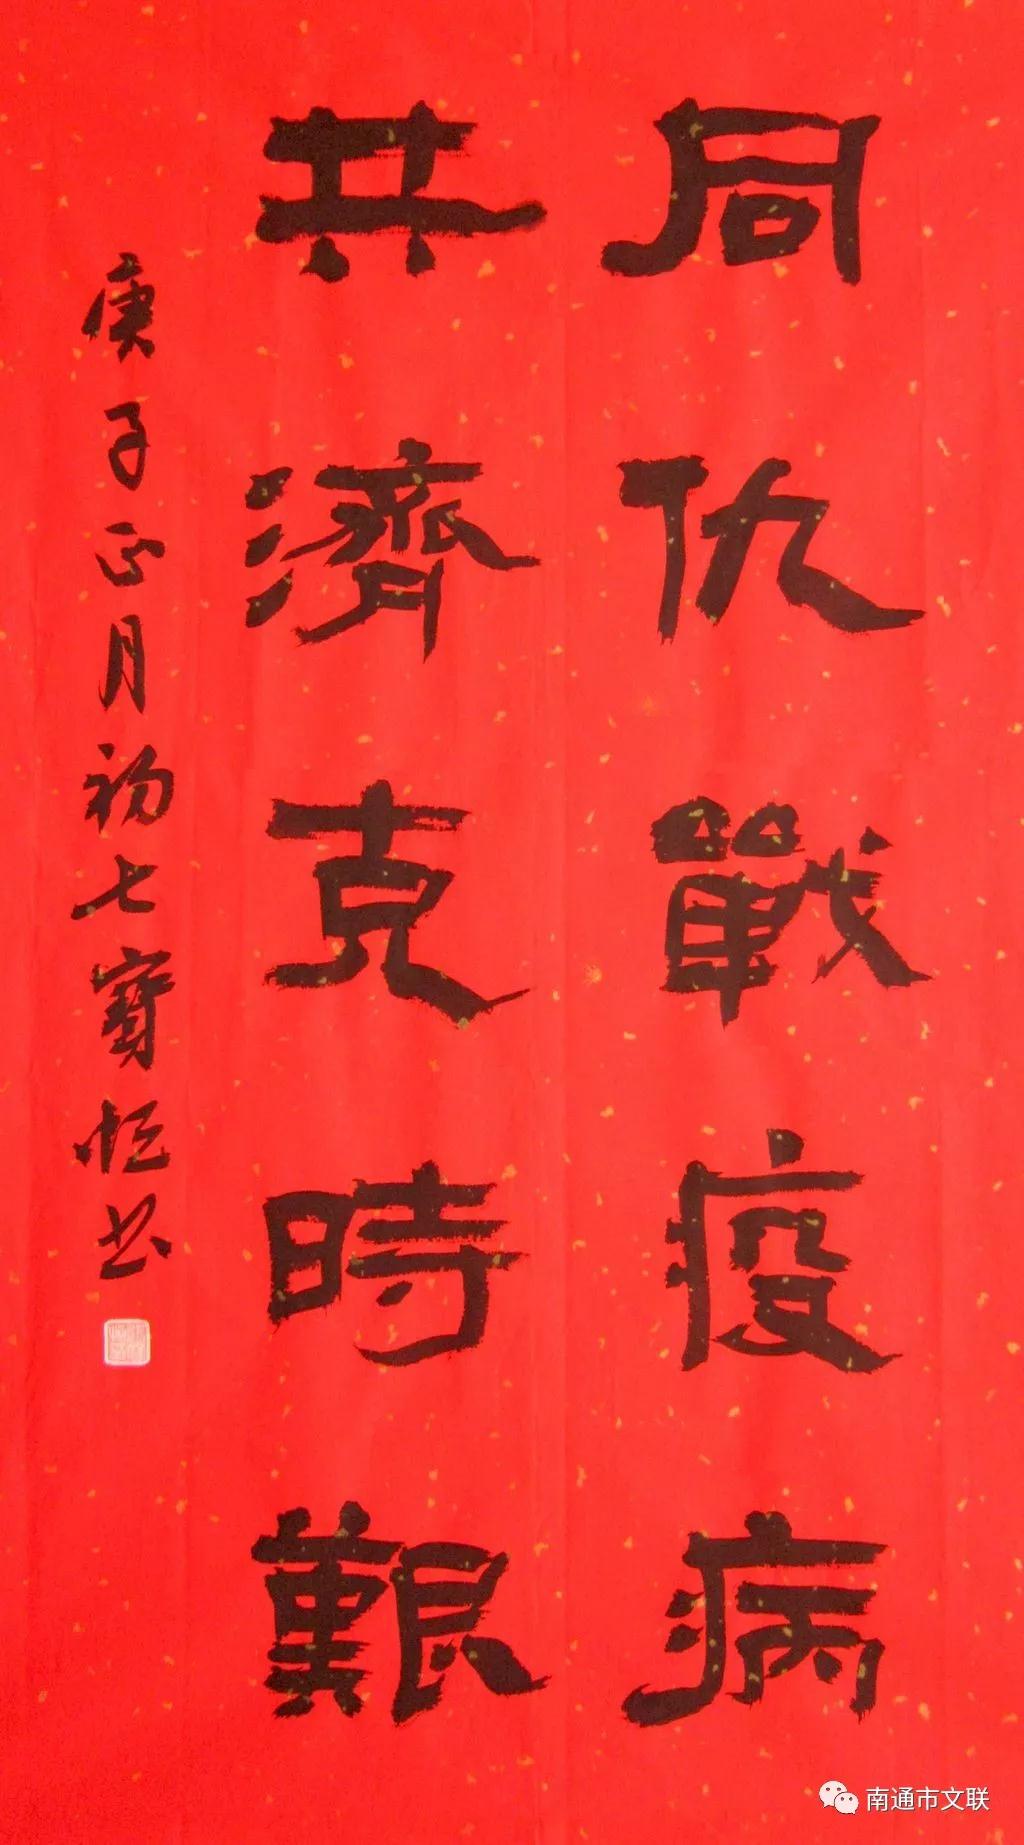 同仇戰疫病
共濟克時艱
庚子正月初七寶恒书
南通市文联